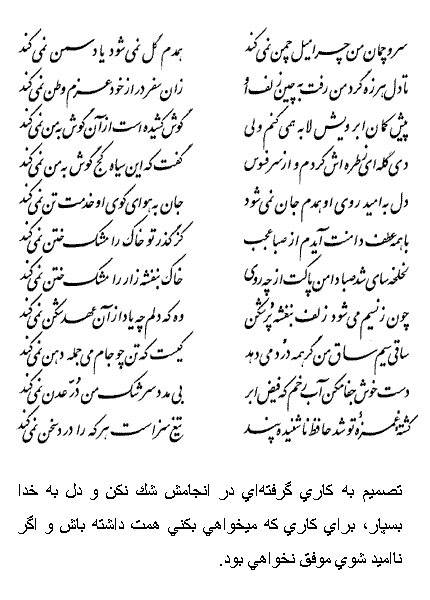 سرو چمان من چرا میل چمن نمی‌کند همدم گل نمی‌شود یاد سمن نمی‌کند
تا دل هرزه گرد من رفت به چین زلف او زان سفر دراز خود عزم وطن نمی‌کند
پیش کمان ابرویش لابه همی کنم ولی گوش کشیده است از آن گوش به من نمی‌کند
دی گله‌ای ز طره‌اش کردم و از سر فسوس گفت که این سیاه کج گوش به من نمی‌کند
دل به امید روی او همدم جان نمی‌شود جان به هوای کوی او خدمت تن نمی‌کند
با همه عطف دامنت آیدم از صبا عجب کز گذر تو خاک را مشک ختن نمی‌کند
لخلخه سای شد صبا دامن پاکت از چه روی خاک بنفشه زار را مشک ختن نمی‌کند
چون ز نسیم می‌شود زلف بنفشه پرشکن وه که دلم چه یاد از آن عهد شکن نمی‌کند
ساقی سیم ساق من گر همه دُرد می‌دهد کیست که تن چو جام می جمله دهن نمی‌کند
دست خوش جفا مکن آب رخم که فیض ابر بی مدد سرشک من دُرّ عدن نمی‌کند
کشته غمزهٔ تو شد حافظ ناشنیده پند تیغ سزاست هر که را درد سخن نمی‌کند
تصميم به كاري گرفته‌اي در انجامش شك نكن و دل به خدا
بسپار، براي كاري كه ميخواهي بكني همت داشته باش و اگر
نااميد شوي موفق نخواهي بود.